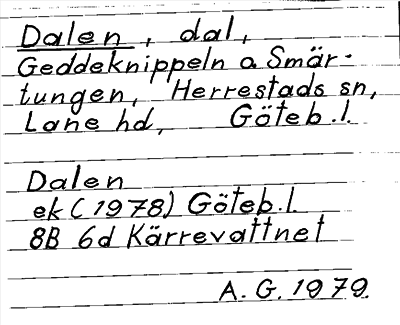 Dalen, dal,
Geddeknippeln a Smär-
tungen, Herrestads sn,
Lane hd, Göteb.l.
Dalen
ek (1978) Göteb.l.
8B 6d Kärrevattnet
A.G. 1979.